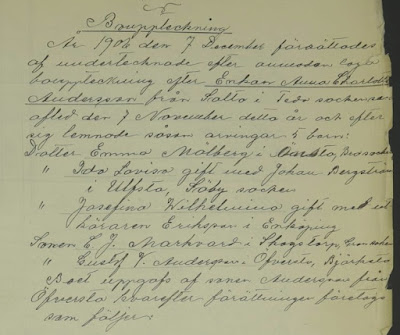 Bouppteckning
År 1906 den 7 December förrättades
af undertecknade efter anmodan laga
bouppteckning efter Enkan Anna Charlotta
Andersson från Salta i Teds socken som
afled den 7 November detta år och efter
sig lemnade såsom arfvingar 5 barn:
Dotter Emma Malberg i
" Ida Lovisa gift med Johan Bergström
i Ulfsta, Säby socken
" Josefina Wilhelmina gift med
köraren Eriksson i Enköping
Sonen C. J. Markvard i Skogstorp,
" Gustaf V. Andersson i Öfversta, Björksta
Boet uppgafs af sonen Andersson från
Öfversta hvarefter förrättningen företogs
som följer: